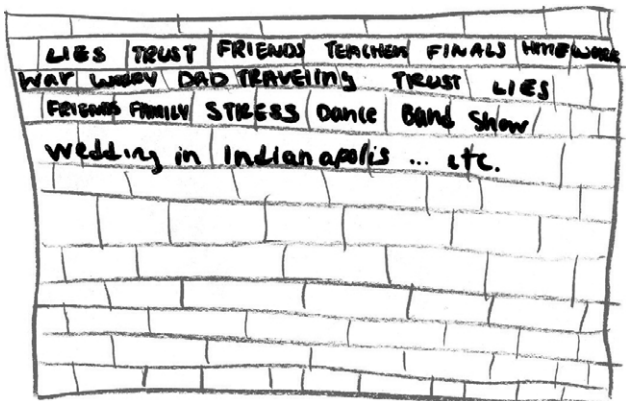 LIES TRUST FRIENDS TEACHER FINALS HOMEWORK
WAR WORRY DAD TRAVELING TRUST LIES
FRIENDS FAMILY STRESS Dance Band Show
wedding in Indianapolis ... etc.